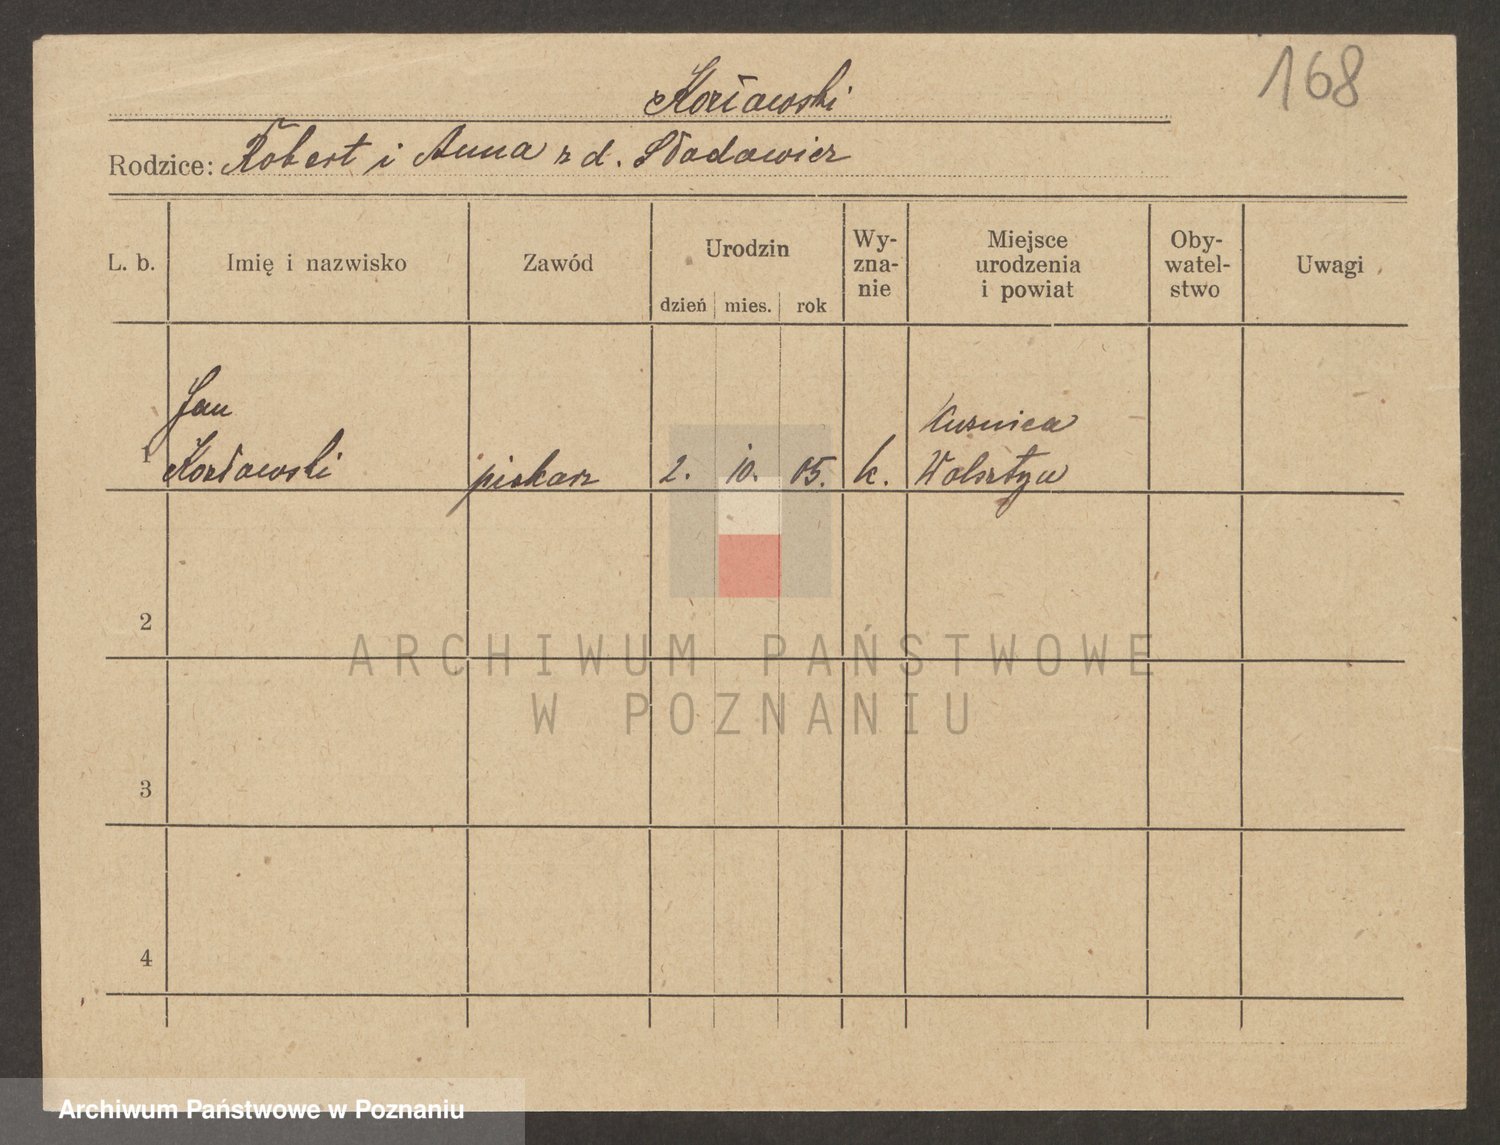 168
Kozłowski
Rodzice: Robert i Anna z d. Słodowicz
L. b.
Imię i nazwisko
Zawód
Urodzin
dzień mies. rok
Wy-
zna-
nie
Miejsce
urodzenia
i powiat
Oby-
watel-
stwo
Uwagi
Jan
1 Kozłowski piekarz 2. 10. 05. k.
Kuźnica
Wolsztyn
2
3
4
ARCHIWUM PAŃSTWOWE
W POZNANIU
Archiwum Państwowe w Poznaniu